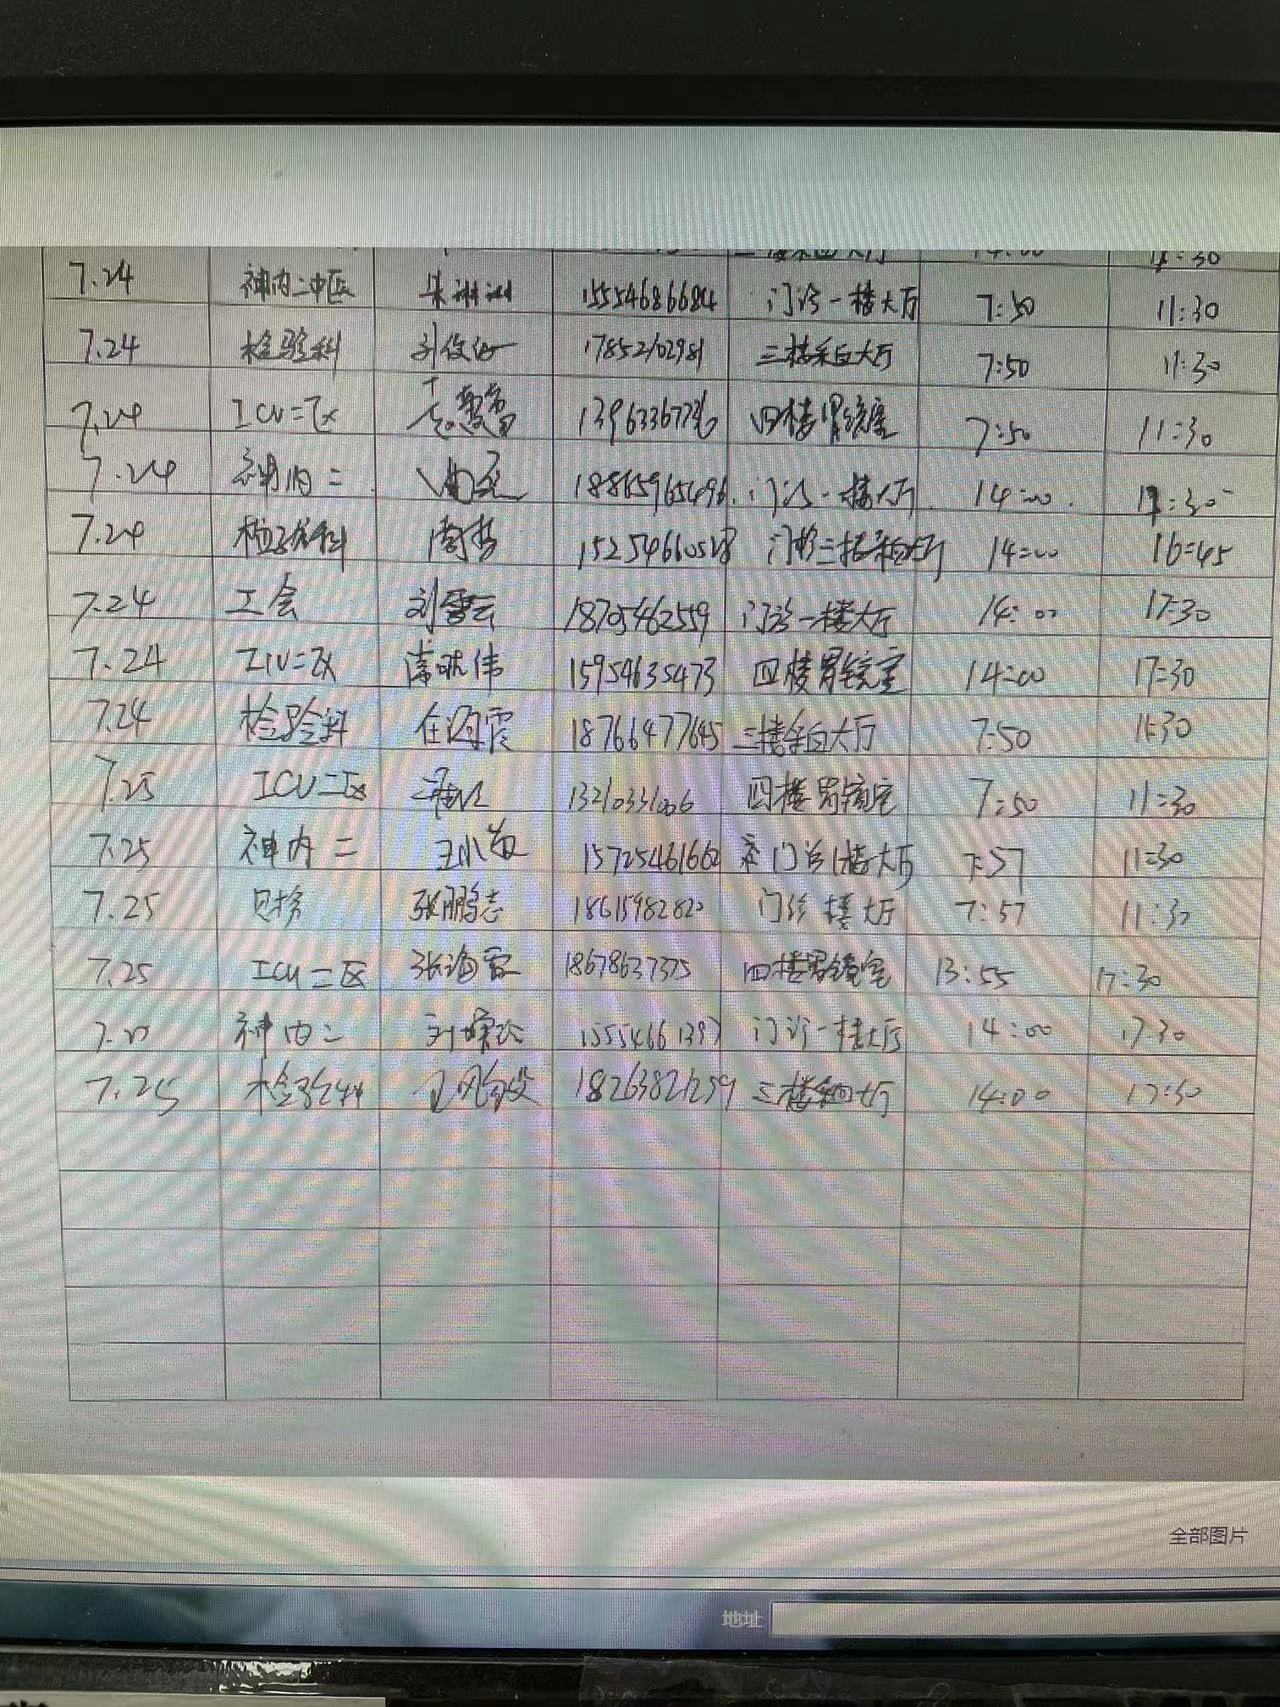 14:00 17:30
7.24 神内二中区 朱琳琳 15554686684 门诊一楼大厅 7:50 11:30
7.24 检验科 17852102981 三楼采血大厅 7:50 11:30
7.24 ICU二区 13963367736 四楼胃镜室 7:50 11:30
7.24 神内二 18865965496 门诊一楼大厅 14:00 17:30
7.24 检验科 周哲 15254660528 门诊三楼采血大厅 14:00 16:45
7.24 工会 刘雪云 18705462559 门诊一楼大厅 14:00 17:30
7.24 ICU二区 15954635473 四楼胃镜室 14:00 17:30
7.24 检验科 任海霞 18766477645 三楼采血大厅 7:50 11:30
7.25 ICU二区 13210331006 四楼胃镜室 7:50 11:30
7.25 神内二 王小苗 15725461662 门诊1楼大厅 7:57 11:30
7.25 张鹏志 18615982822 门诊 楼大厅 7:57 11:30
7.25 ICU二区 张海霞 18678637375 四楼胃镜室 13:55 17:30
神内二 15554661397 门诊一楼大厅 14:00 17:30
7.25 检验科 18263821259 三楼采血大厅 14:00 17:30
全部图片
地址